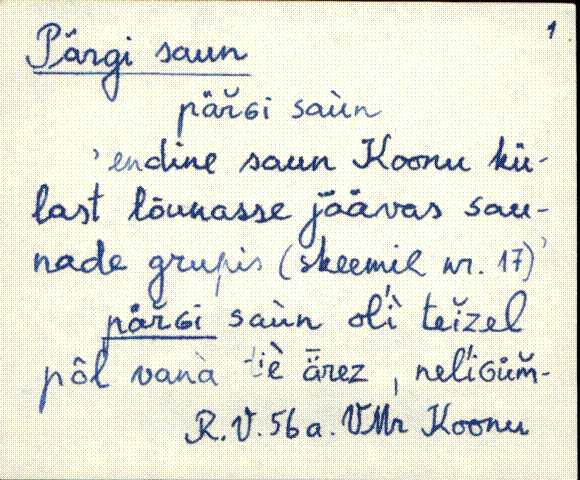 1
Pärgi saun
pär̆Gi saùn
'endine saun Koonu kü-
last lõunasse jäävas sau-
nade grupis (skeemil nr. 17)'
pär̆Gi saùn oĺì teĭzel
pôl vanà tiè ärez, neĺiGŭm̆-
R.V. 56 a. VMr Koonu